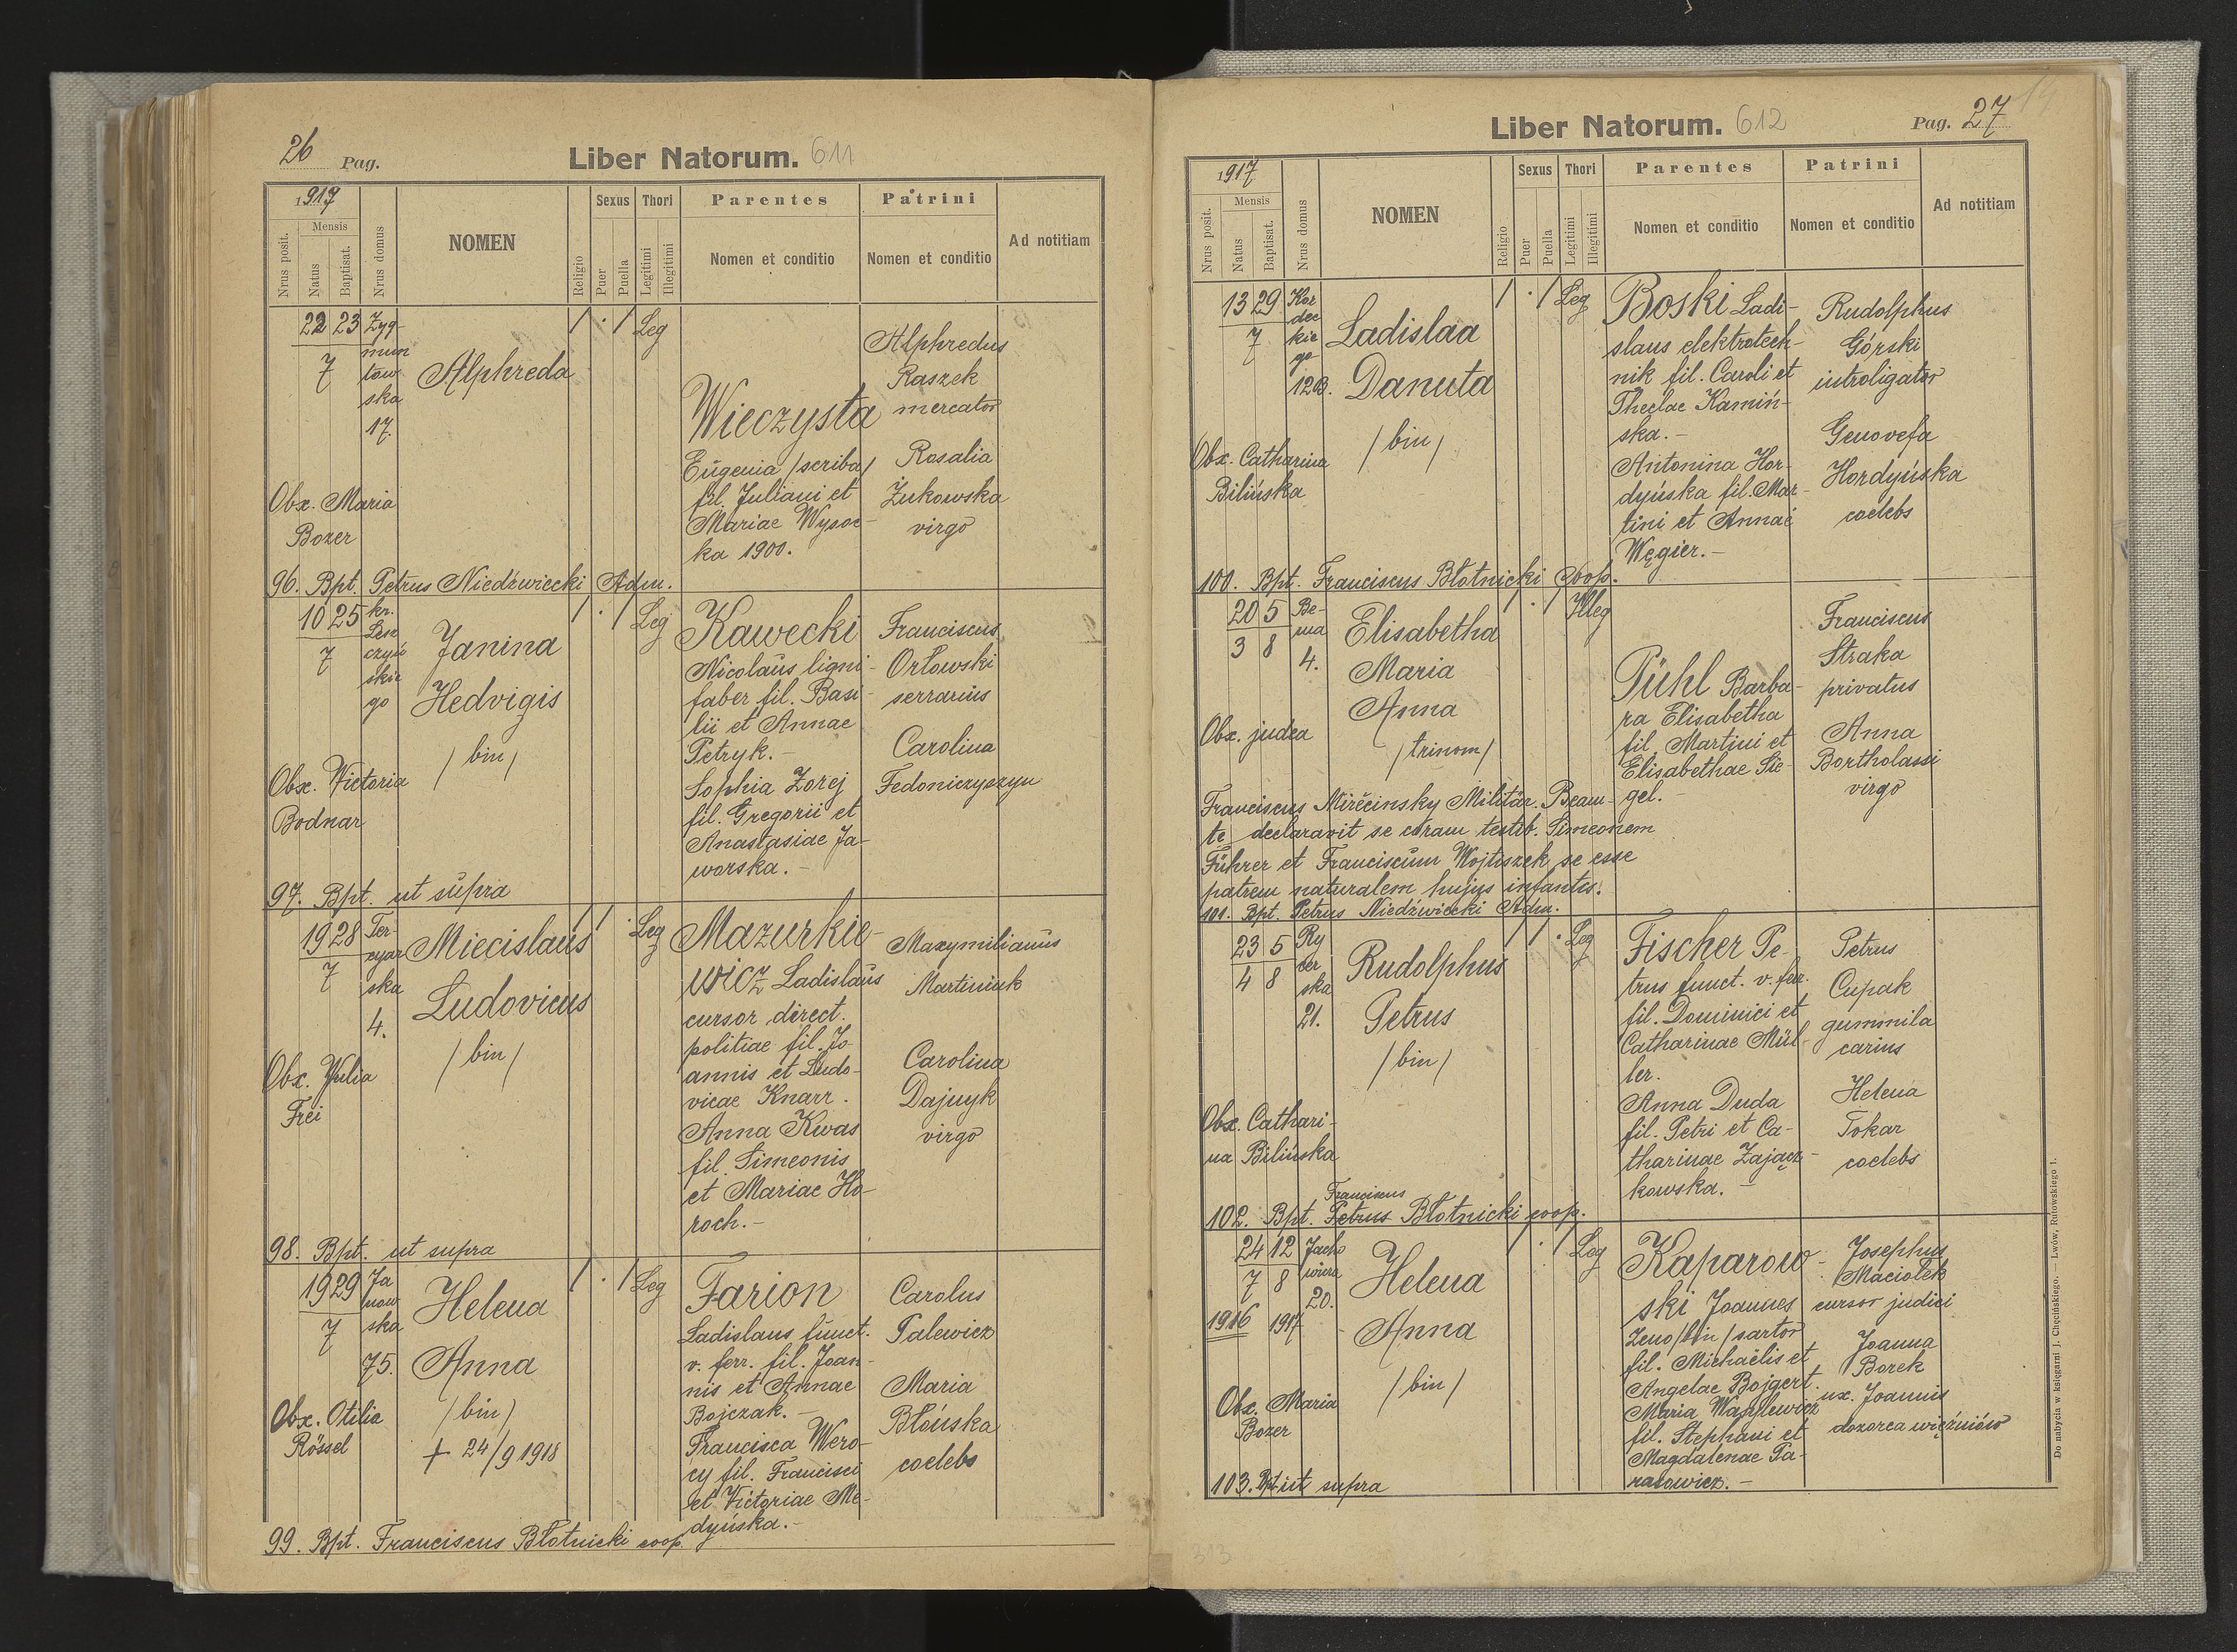 26 Pag. Liber Natorum. 611
1917
Nrus posit.
Mensis
Natus
Baptisat.
Nrus domus
NOMEN
Religio
Sexus
Puer
Puella
Thori
Legitimi
Illegitimi
Parentes
Nomen et conditio
Patrini
Nomen et conditio
Ad notitiam
22 23
7
Zyg-
mun
tow
ska
17.
Alphreda
Leg
Wieczysta
Eugenia /scriba/
fil. Juliani et
Mariae Wysoc-
ka 1900.
Alphredus
Raszek
mercator
Rosalia
Żukowska
virgo
Obx. Maria
Bozer
96. Bpt. Petrus Niedźwiecki Adm.
10 25
7
kr.
Les
czyń
skie
go
Janina
Hedvigis
/bin/
Leg
Kawecki
Nicolaus ligni-
faber fil. Basi-
lii et Annae
Petryk.-
Sophia Zorej
fil. Gregorii et
Anastasiae Ja-
worska.-
Franciscus
Orłowski
serrarius
Carolina
Fedoniczyszyn
Obx. Victoria
Bodnar
97. Bpt. ut supra
19 28
7
Ter-
cyar
ska
4.
Miecislaus
Ludovicus
/bin/
Leg
Mazurkie-
wicz Ladislaus
cursor direct.
politiae fil. Jo-
annis et Ludo-
vicae Knarr.
Anna Kwas
fil. Simeonis
et Mariae Ho-
roch.-
Maxymilianus
Martiniuk
Carolina
Dajuyk
virgo
Obx. Julia
Frei
98. Bpt. ut supra
19 29
7
Ja
now
ska
75.
Helena
Anna
/bin/
+ 24/9 1918
Leg
Farion
Ladislaus funct.
v. ferr. fil. Joan-
nis et Annae
Bojczak.-
Francisca Wero-
cy fil. Francisci
et Victoriae Me-
dyńska.-
Carolus
Palewicz
Maria
Błońska
coelebs
Obx. Otilia
Rössel
99. Bpt. Franciscus Błotnicki coop.
Liber Natorum. 612 Pag. 27
1917
Nrus posit.
Mensis
Natus
Baptisat.
Nrus domus
NOMEN
Religio
Sexus
Puer
Puella
Thori
Legitimi
Illegitimi
Parentes
Nomen et conditio
Patrini
Nomen et conditio
Ad notitiam
13 29
7
Kor
dec
kie
go
12B.
Ladislaa
Danuta
/bin/
Leg
Boski Ladi-
slaus elektrotech-
nik fil. Caroli et
Theclae Kamiń-
ska.-
Antonina Hor-
dyńska fil. Mar-
tini et Annae
Węgier.-
Rudolphus
Górski
introligator
Genovefa
Hordyńska
coelebs
Obx. Catharina
Bilińska
100. Bpt. Franciscus Błotnicki Coop.
20 5
3 8
Be-
ma
4.
Elisabetha
Maria
Anna
/trinom/
Illeg
Pühl Barba-
ra Elisabetha
fil. Martini et
Elisabethae Sie-
gel.-
Franciscus
Straka
privatus
Anna
Bortholassi
virgo
Obx. judea
Franciscus Mirěcinsky Militär. Beam-
te declaravit se coram testib. Simeonem
Führer et Franciscum Wojtiszek se esse
patrem naturalem hujus infantis.
101. Bpt. Petrus Niedźwiecki Adm.
23 5
4 8
Ry
cer
ska
21.
Rudolphus
Petrus
/bin/
Leg
Fischer Pe-
trus funct. v. ferr.
fil. Dominici et
Catharinae Mül-
ler.
Anna Duda
fil. Petri et Ca-
tharinae Zającz-
kowska.-
Petrus
Cupak
gummila
carius
Helena
Tokar
coelebs
Obx. Cathari-
na Bilińska
Franciscus
102. Bpt. Petrus Błotnicki coop.
24 12
7 8
1916 1917
Jacho
wicza
20.
Helena
Anna
/bin/
Leg
Kaparow-
ski Joannes
Zeno /bin/ sartor
fil. Michaëlis et
Angelae Bojgert.
Maria Wasylewicz
fil. Stephani et
Magdalenae Ta-
rasowicz.-
Josephus
Maciołek
cursor judici
Joanna
Borek
ux. Joannis
dozorca więźniów
Obx. Maria
Bozer
103. Bpt. ut supra
Do nabycia w księgarni J. Chęcińskiego. — Lwów, Rutowskiego 1.
313